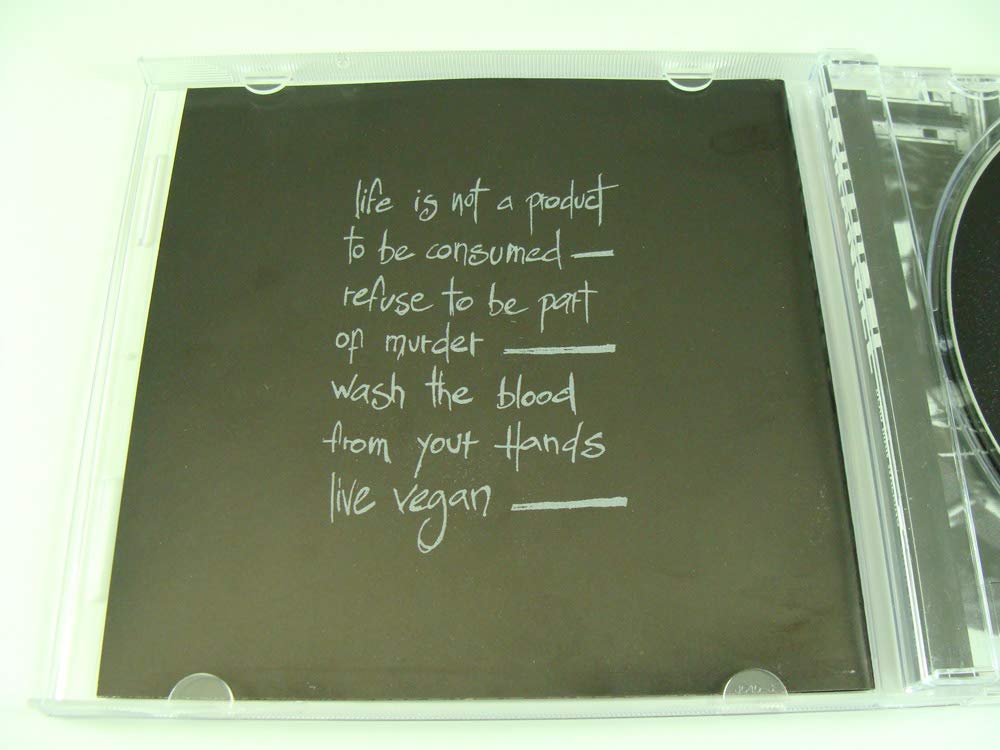 life is not a product
to be consumed —
refuse to be part
of murder —
wash the blood
from your Hands
live vegan —